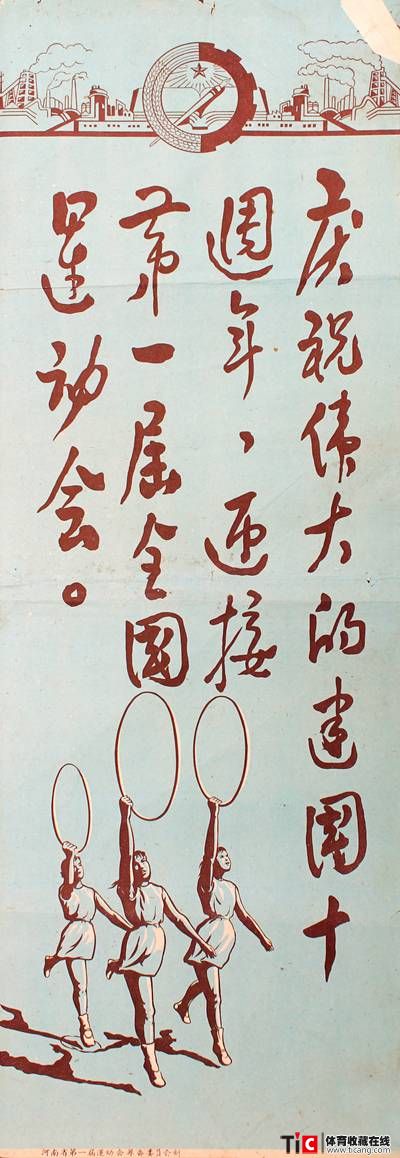 庆祝伟大的建國十
週年、迎接
第一届全國
運动会。
河南省第一届运动会筹备委员会制
TiC 体育收藏在线
www.ticang.com